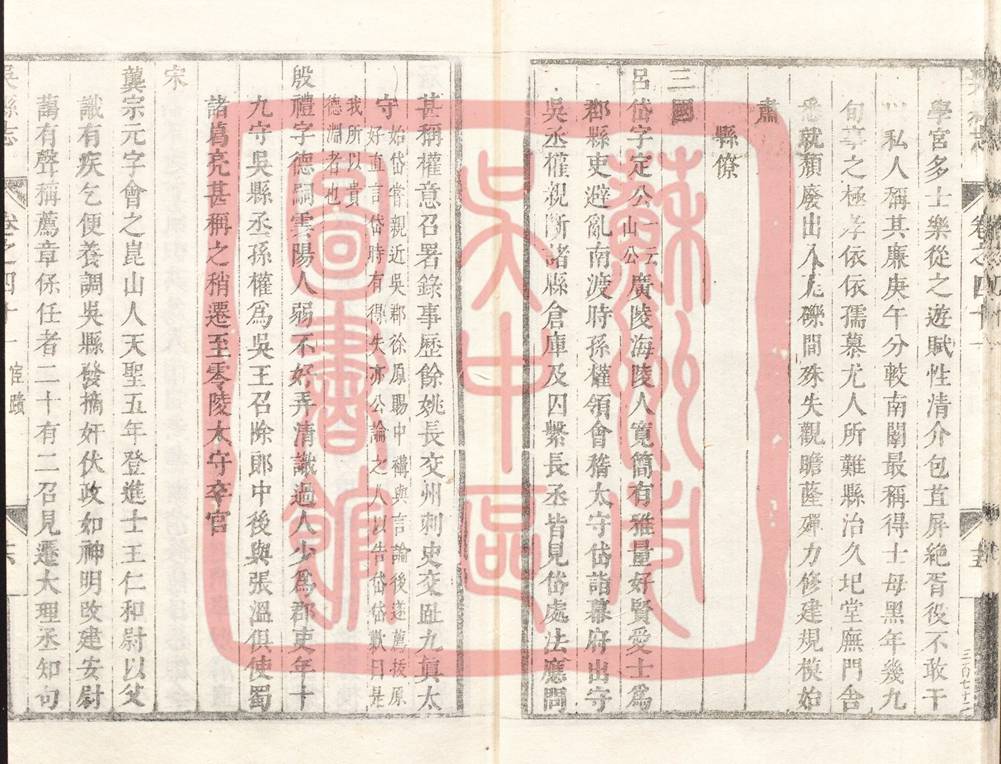 學宮多士樂從之遊賦性清介包苴屏絕胥役不敢干
以私人稱其廉庚午分較南闈最稱得士母黑年幾九
旬事之極孝依依孺慕尤人所難縣治久圮堂廡門舍
悉就頹廢出入瓦礫間殊失觀瞻薩殫力修建規模始
肅
縣僚
三國
呂岱字定公一云山公廣陵海陵人寬簡有雅量好賢愛士爲
郡縣吏避亂南渡時孫權領會稽太守岱詣幕府出守
吳丞權親斷諸縣倉庫及囚繫長丞皆見岱處法應問
甚稱權意召署錄事歷餘姚長交州刺史交趾九眞太
守始岱嘗親近吳郡徐原賜巾褠與言論後遂薦拔原好直言岱時有得失亦公論之人以告岱岱歎曰是我所以貴德淵者也
殷禮字德嗣雲陽人弱不好弄清識過人少爲郡吏年十
九守吳縣丞孫權爲吳王召除郎中後與張溫俱使蜀
諸葛亮甚稱之稍遷至零陵太守卒官
宋
龔宗元字會之崑山人天聖五年登進士王仁和尉以父
識有疾乞便養調吳縣發摘奸伏政如神明改建安尉
藹有聲稱薦章係任者二十有二召見遷大理丞知句
吳縣志
卷之四十一 宦蹟
六
蘇州市
吳中區
圖書館